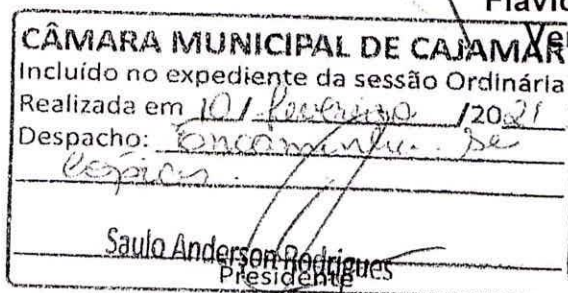 Flavio
Ver
CÂMARA MUNICIPAL DE CAJAMAR
Incluído no expediente da sessão Ordinária
Realizada em 10 / fevereiro /2021
Despacho: Encaminhe-se
cópias.
Saulo Anderson Rodrigues
Presidente